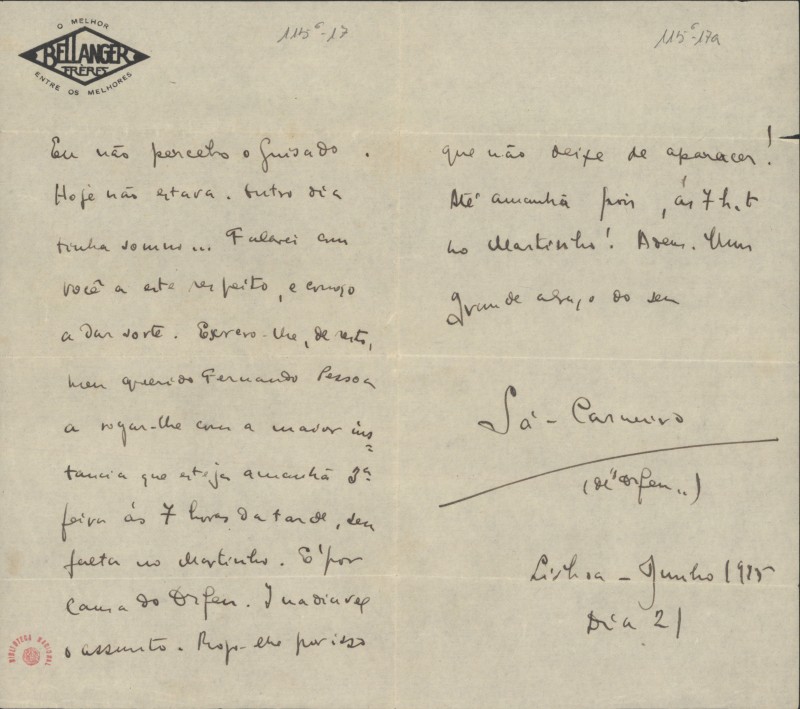 O MELHOR
BELLANGER
FRÈRES
ENTRE OS MELHORES
115⁶-17
Eu não percebo o Guisado.
Hoje não estava. Outro dia
tinha somno... Falarei com
você a este respeito, e comigo
a dar sorte. Escrevo-lhe, de resto,
meu querido Fernando Pessoa
a rogar-lhe com a maior ins-
tancia que esteja amanhã 3ª
feira ás 7 horas da tarde, sem
falta no Martinho. E' por
causa do Orfeu. Inadiavel
o assunto. Rogo-lhe por isso
BIBLIOTECA NACIONAL
115⁶-17a
que não deixe de aparecer!
Até amanhã pois, ás 7 h. t
no Martinho! Adeus. Um
grande abraço do seu
Sá-Carneiro
(de "Orfeu„)
Lisboa - Junho 1915
Dia 21